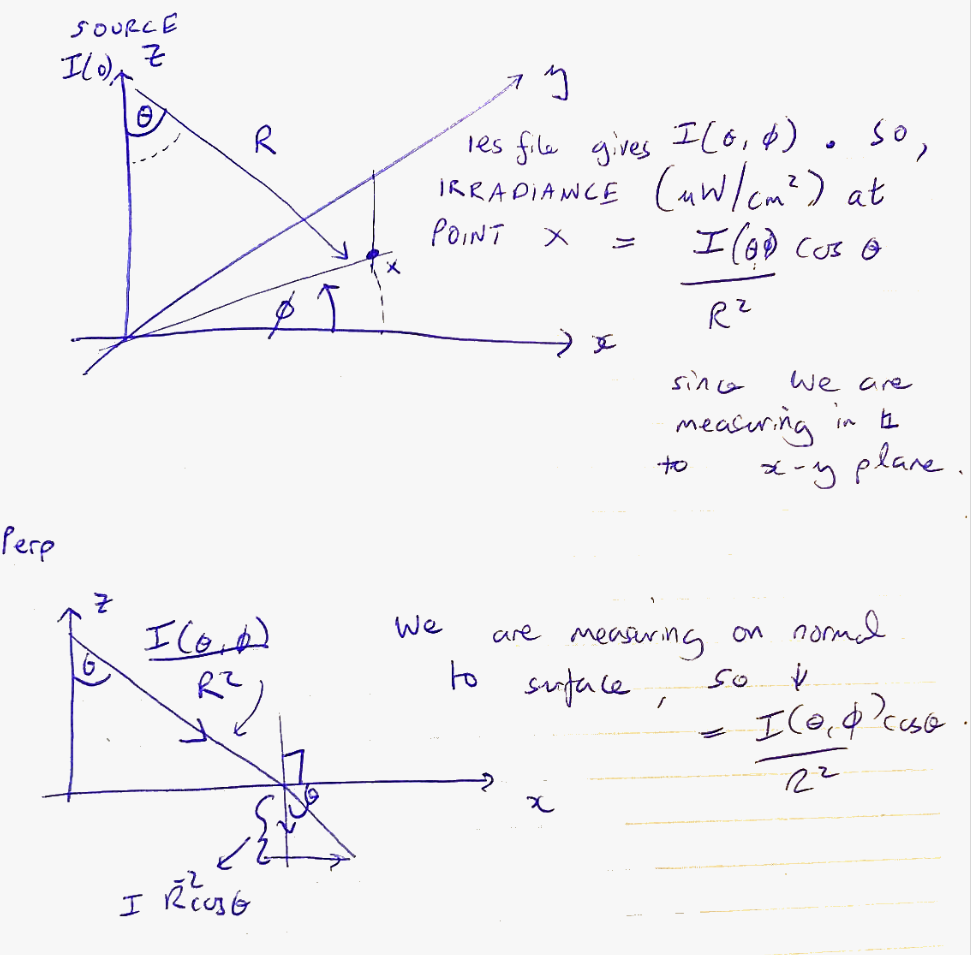 SOURCE
I(0) z
θ
R
y
x
ϕ
x
ies file gives I(θ, ϕ) . so,
IRRADIANCE (uW/cm²) at
POINT X = I(θϕ) cos θ
R²
since we are
measuring in ⊥
to x-y plane.
Perp
z
θ
I(θ, ϕ)
R²
θ
x
I R⁻² cosθ
We are measuring on normal
to surface, so ↓
= I(θ, ϕ) cosθ.
R²